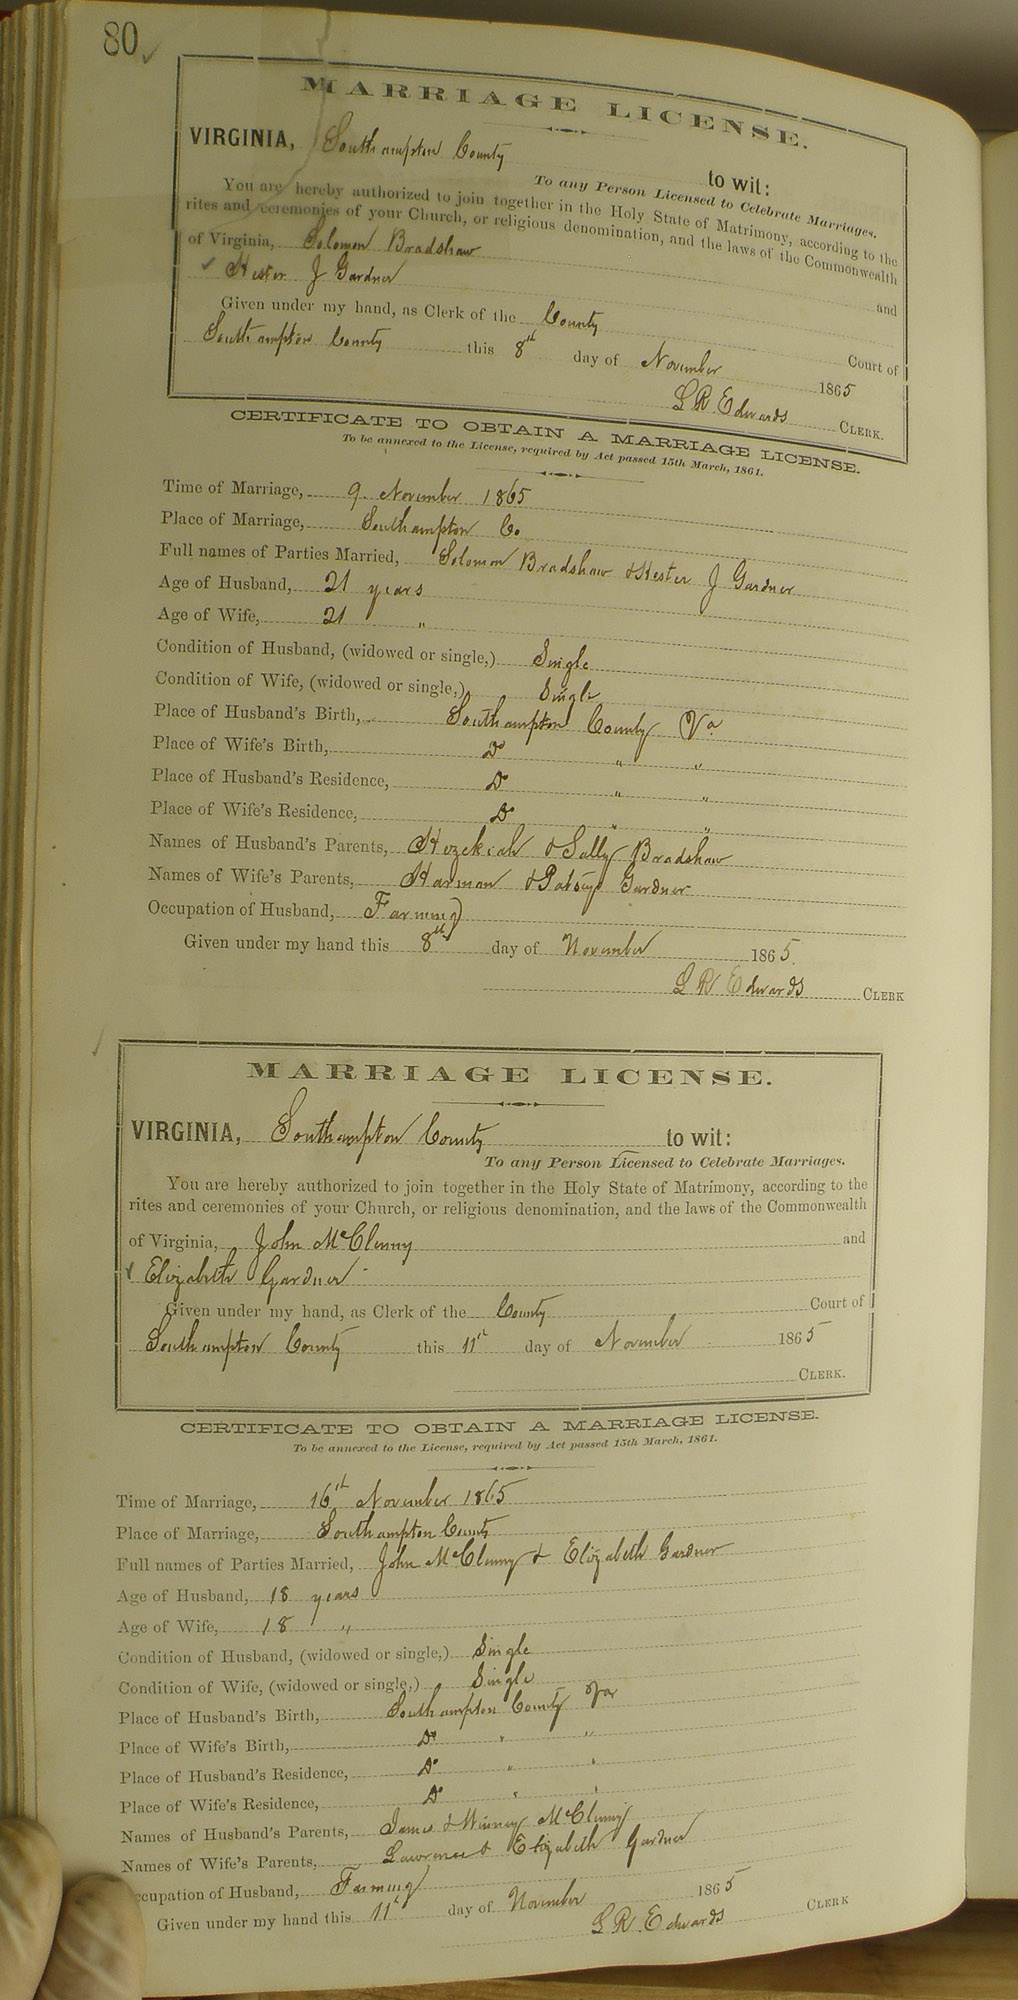 80
MARRIAGE LICENSE.
VIRGINIA, Southampton County to wit:
To any Person Licensed to Celebrate Marriages.
You are hereby authorized to join together in the Holy State of Matrimony, according to the
rites and ceremonies of your Church, or religious denomination, and the laws of the Commonwealth
of Virginia, Solomon Bradshaw and
Hester J Gardner
Given under my hand, as Clerk of the County Court of
Southampton County this 8th day of November 1865
L R Edwards CLERK.
CERTIFICATE TO OBTAIN A MARRIAGE LICENSE.
To be annexed to the License, required by Act passed 15th March, 1861.
Time of Marriage, 9 November 1865
Place of Marriage, Southampton Co
Full names of Parties Married, Solomon Bradshaw & Hester J Gardner
Age of Husband, 21 years
Age of Wife, 21 "
Condition of Husband, (widowed or single,) Single
Condition of Wife, (widowed or single,) Single
Place of Husband's Birth, Southampton County Va
Place of Wife's Birth, Do " "
Place of Husband's Residence, Do " "
Place of Wife's Residence, Do " "
Names of Husband's Parents, Hezekiah & Sally Bradshaw
Names of Wife's Parents, Harman & Patsy Gardner
Occupation of Husband, Farming
Given under my hand this 8th day of November 1865.
L R Edwards CLERK
MARRIAGE LICENSE.
VIRGINIA, Southampton County to wit:
To any Person Licensed to Celebrate Marriages.
You are hereby authorized to join together in the Holy State of Matrimony, according to the
rites and ceremonies of your Church, or religious denomination, and the laws of the Commonwealth
of Virginia, John McClenny and
Elizabeth Gardner
Given under my hand, as Clerk of the County Court of
Southampton County this 11th day of November 1865
CLERK.
CERTIFICATE TO OBTAIN A MARRIAGE LICENSE.
To be annexed to the License, required by Act passed 15th March, 1861.
Time of Marriage, 16th November 1865
Place of Marriage, Southampton County
Full names of Parties Married, John McClenny & Elizabeth Gardner
Age of Husband, 18 years
Age of Wife, 18 "
Condition of Husband, (widowed or single,) Single
Condition of Wife, (widowed or single,) Single
Place of Husband's Birth, Southampton County Va
Place of Wife's Birth, Do " "
Place of Husband's Residence, Do " "
Place of Wife's Residence, Do " "
Names of Husband's Parents, James & Winney McClenny
Names of Wife's Parents, Lawrence & Elizabeth Gardner
ccupation of Husband, Farming
Given under my hand this 11th day of November 1865
L R Edwards CLERK